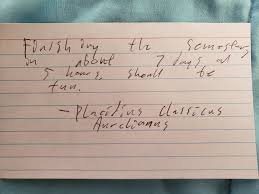 Finishing the semester
in about 2 days at
5 hours, should be
fun.
- Placidius Classicus
Aurelianus